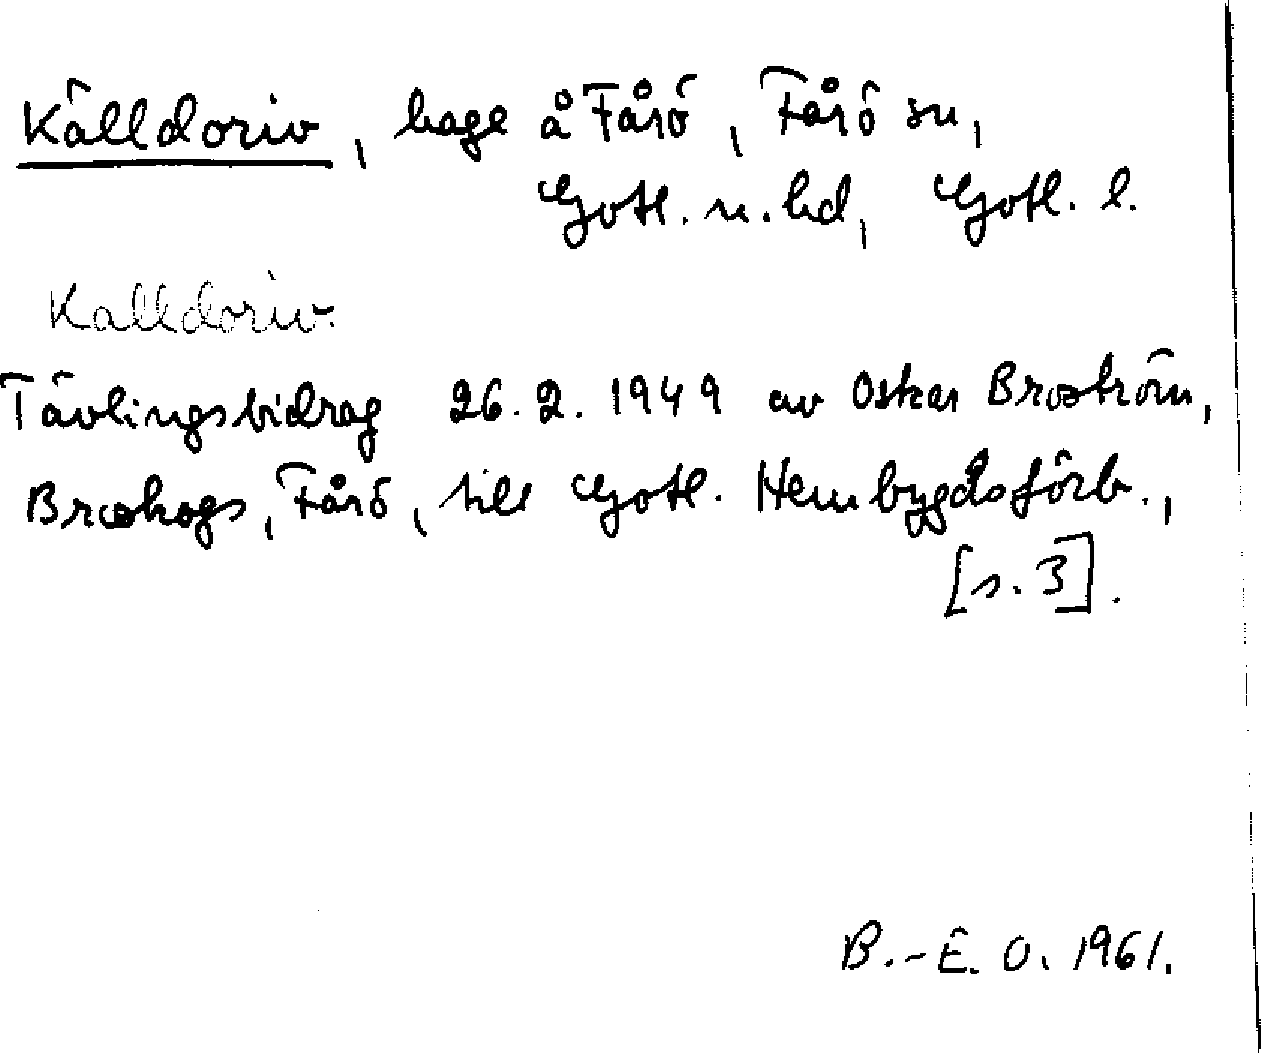 Källdoriv, hage å Fårö, Fårö sn,
Gotl. n. hd, Gotl. l.
Kalldoriv.
Tävlingsbidrag 26.2.1949 av Oskar Broström,
Broskogs, Fårö, till Gotl. Hembygdsförb.,
[s. 3].
B.-E. O. 1961.